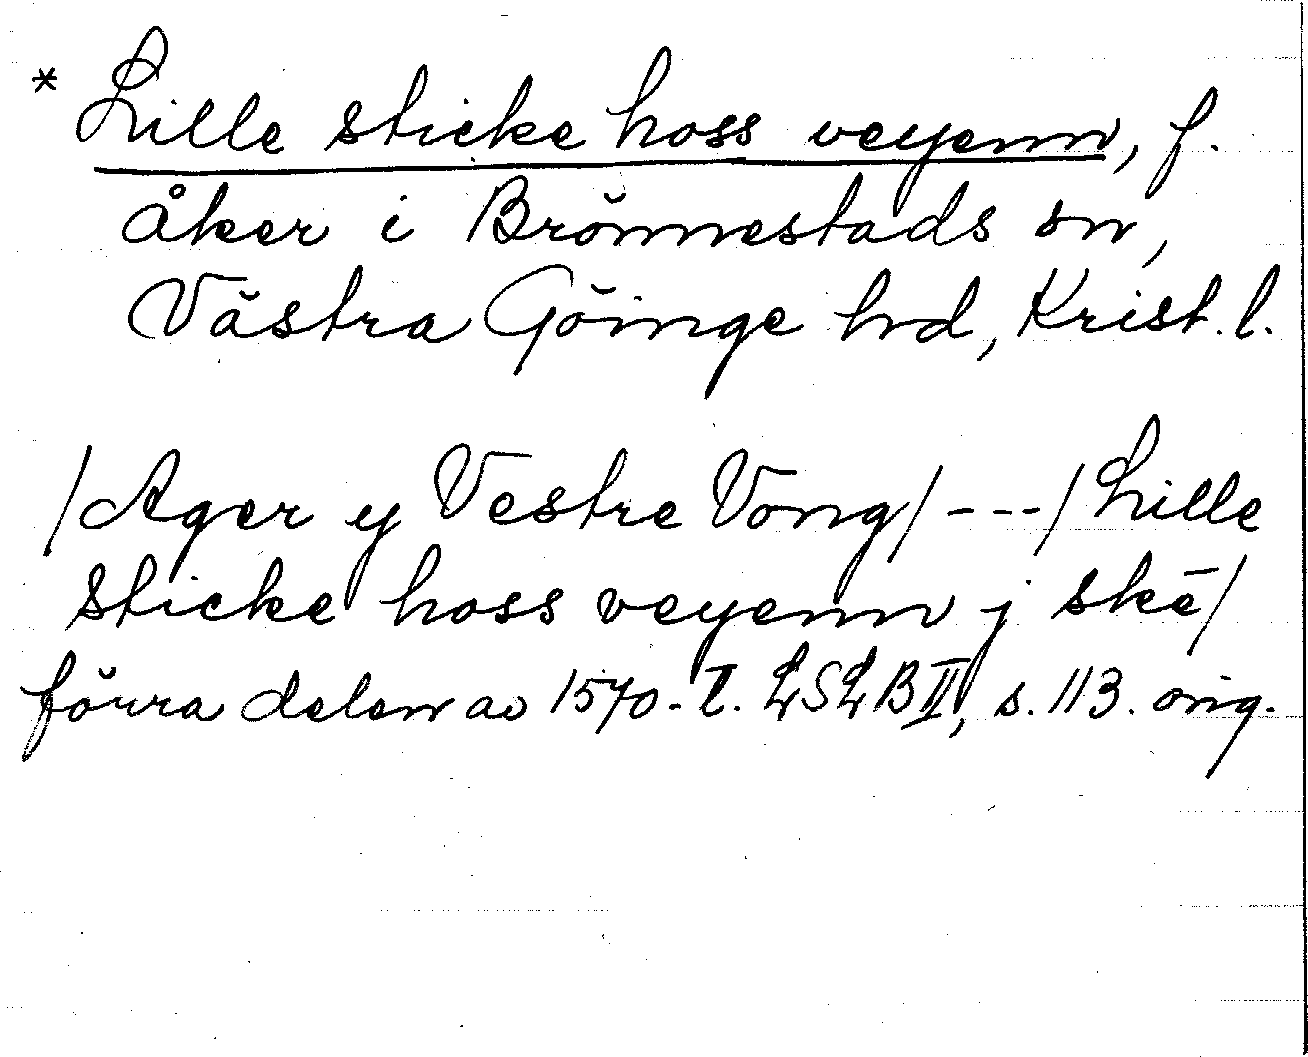 * Lille sticke hoss veyenn, f.
åker i Brönnestads sn,
Västra Göinge hd, Krist. l.
/Ager y Vestre Vong/---/Lille
sticke hoss veyenn j skē/
förra delen av 1570-t. LSLB II, s. 113. orig.